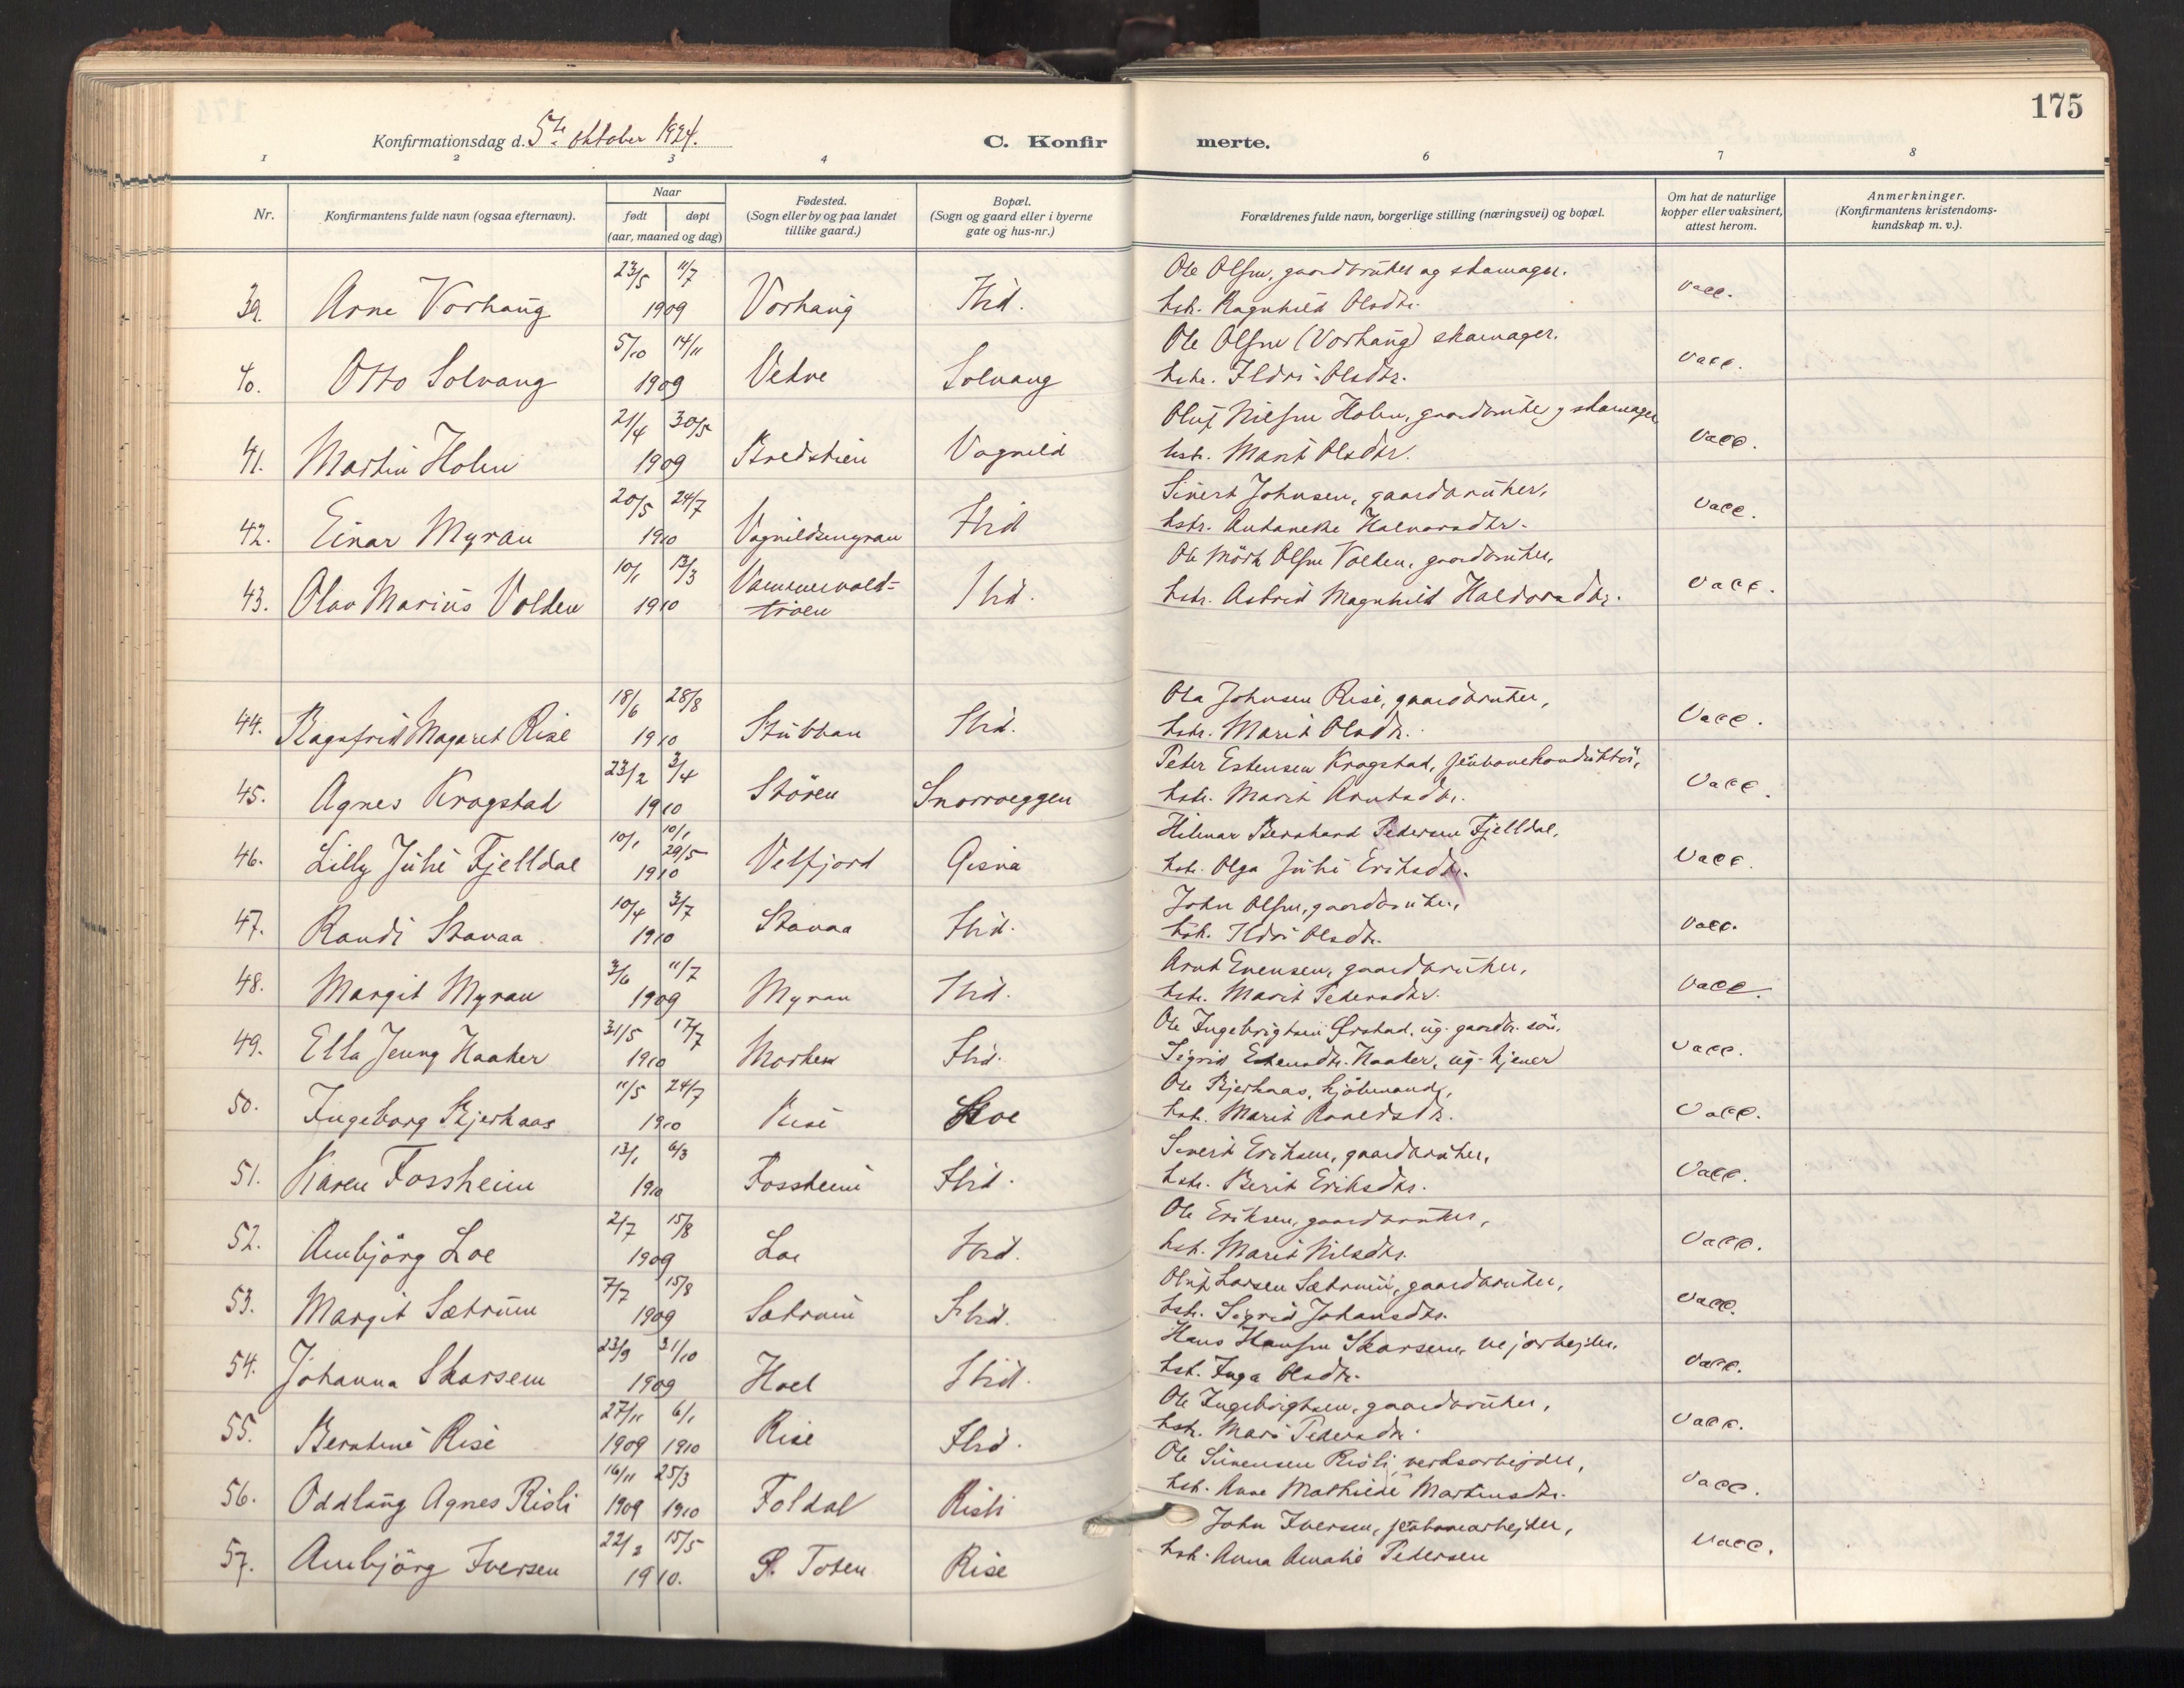 175
Konfirmationsdag d. 5te oktober 1924. C. Konfirmerte.
1 2 3 4 6 7 8
Nr. Konfirmantens fulde navn (ogsaa efternavn). Naar født døpt (aar, maaned og dag) Fødested. (Sogn eller by og paa landet tillike gaard.) Bopæl. (Sogn og gaard eller i byerne gate og hus-nr.) Forældrenes fulde navn, borgerlige stilling (næringsvei) og bopæl. Om hat de naturlige kopper eller vaksinert, attest herom. Anmerkninger. (Konfirmantens kristendoms-kundskap m. v.).
39. Arne Vorhaug 23/5 11/7 1909 Vorhaug Ibid. Ole Olsen, gaardbruker og skomager. Vacc.
hstr. Ragnhild Olsdtr.
40. Otto Solvang 5/10 14/11 1909 Solvang Ole Olsen (Vorhaug) skomager. Vacc.
hstr. Ildri Olsdtr.
41. Martin Holen 21/4 30/5 1909 Vognild Oluf Nilsen Holen, gaardbruker og skomager Vacc.
hstr. Marit Olsdtr.
42. Einar Myran 20/5 24/7 1910 Vognildsmyran Ibid Sivert Johnsen, gaardbruker, Vacc.
hstr. Halvorsdtr.
43. Olav Marius Volden 10/1 13/3 1910 Vammervold-troen Ibid. Ole Olsen Volden, gaardbruker, Vacc.
hstr. Astrid Magnhild Haldorsdtr.
44. Ragnfrid Magaret Rise 18/6 28/8 1910 Stubban Ibid. Ola Johnsen Rise, gaardbruker, Vacc.
hstr. Marit Olsdtr.
45. Agnes Krogstad 23/2 3/4 1910 Støren Snorroeggen Peter Estensen Krogstad, jernbanekonduktør, Vacc.
hstr. Marit Arntsdtr.
46. Lilly Julie Fjelldal 10/1 10/1 29/5 1910 Velfjord Gisna Hilmar Bernhard Pedersen Fjelldal, Vacc.
hstr. Olga Julie Eriksdtr.
47. Randi Stavaa 10/4 3/7 1910 Stavaa Ibid. John Olsen, gaardbruker, Vacc.
hstr. Ildri Olsdtr.
48. Margit Myran 3/6 11/7 1909 Myran Ibid. Arnt Evensen, gaardbruker, Vacc.
hstr. Marit Pedersdtr.
49. Ella Jenny Haaker 31/5 17/7 1910 Ibid. Ole Ingebrigtsen Ørstad, ug. gaardbr. søn, Vacc.
Sigrid Estensdtr. Haaker, ug. tjener
50. Ingeborg Bjerkaas 11/5 24/7 1910 Rise Loe Ole Bjerkaas, kjøbmand, Vacc.
hstr. Marit
51. Karen Fossheim 13/1 6/3 1910 Fossheim Ibid. Sivert Eriksen, gaardbruker, Vacc.
hstr. Berit Eriksdtr.
52. Ambjörg Loe 2/7 15/8 1909 Loe Ibid. Ole Eriksen, gaardbruker, Vacc.
hstr. Marit Nilsdtr.
53. Margit Sætrum 7/7 15/8 1909 Sætrum Ibid. Oluf Larsen Sætrum, gaardbruker, Vacc.
hstr. Sigrid Johansdtr.
54. Johanna Skarsem 23/9 31/10 1909 Hoel Ibid. Hans Hansen Skarsem, vejarbejder, Vacc.
hstr. Inga Olsdtr.
55. Berntine Rise 27/11 1909 6/1 1910 Rise Ibid. Ole Ingebrigtsen, gaardbruker, Vacc.
hstr. Mari Pedersdtr.
56. Oddlaug Agnes Risli 16/11 1909 25/3 1910 Foldal Risli Ole Simensen Risli, verksarbejder, Vacc.
hstr. Anne Mathilde Martinsdtr.
57. Ambjörg Iversen 22/2 15/5 1910. Ø. Toten Rise John Iversen, jernbanearbejder, Vacc.
hstr. Anna Amalie Pedersen